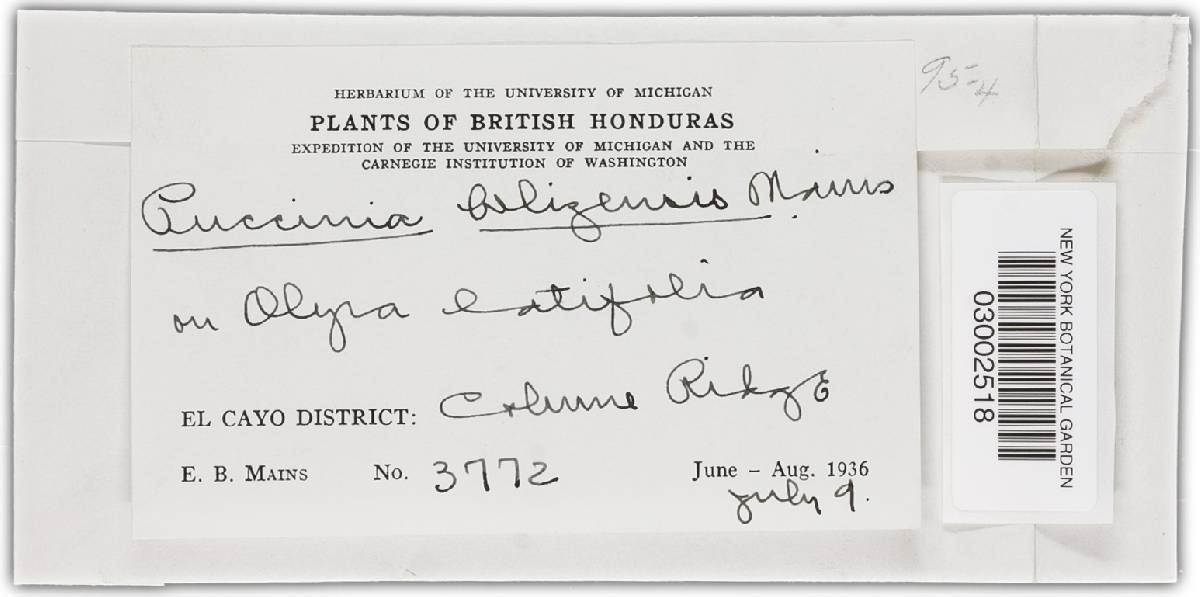 HERBARIUM OF THE UNIVERSITY OF MICHIGAN
PLANTS OF BRITISH HONDURAS
EXPEDITION OF THE UNIVERSITY OF MICHIGAN AND THE
CARNEGIE INSTITUTION OF WASHINGTON
Puccinia belizensis Mains
on Olyra latifolia
EL CAYO DISTRICT: Cohune Ridge
E. B. MAINS No. 3772 June – Aug. 1936
July 9.
95-4
NEW YORK BOTANICAL GARDEN
03002518